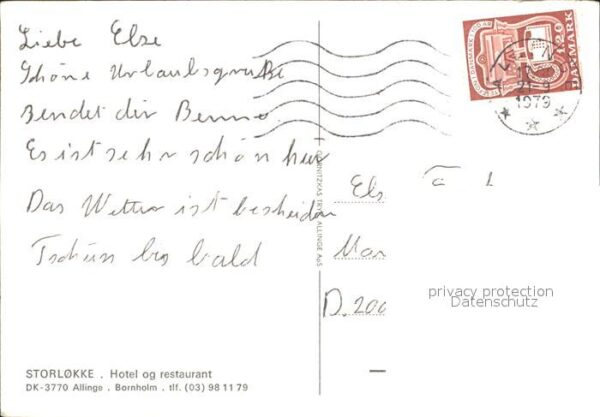 Liebe Else
Schöne Urlaubsgrüße
sendet dir Benno.
Es ist sehr schön hier
Das Wetter ist bescheiden
Tschüss bis bald
Els
Mar
D. 200
STORLØKKE . Hotel og restaurant
DK-3770 Allinge . Bornholm . tlf. (03) 98 11 79
TRYK ALLINGE A/S
120
DANMARK
21-9
1979
privacy protection
Datenschutz